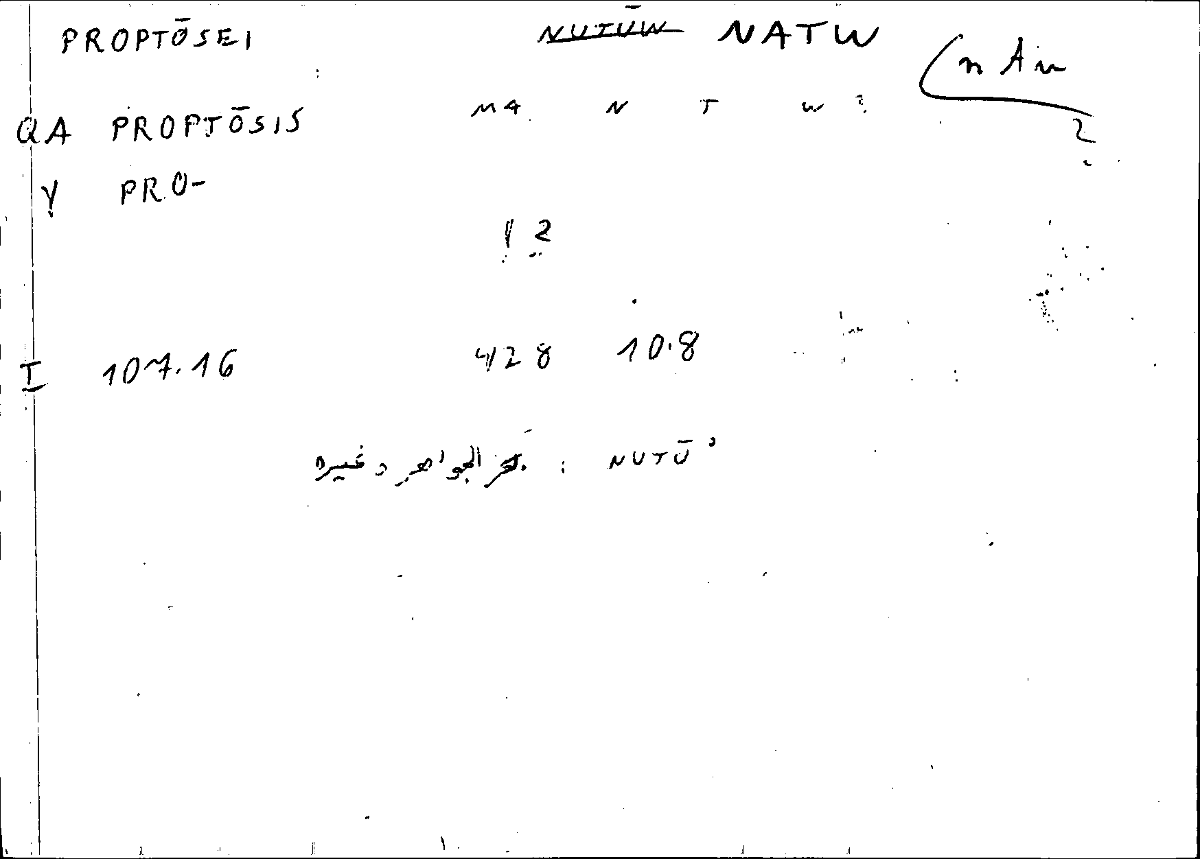 PROPTŌSEI NUTŪW NATW
QA PROPTŌSIS M4 N T W ?
Y PRO-
1 2
I 107.16 428 10.8
بحر الجواهر وغيره : NUTŪ'